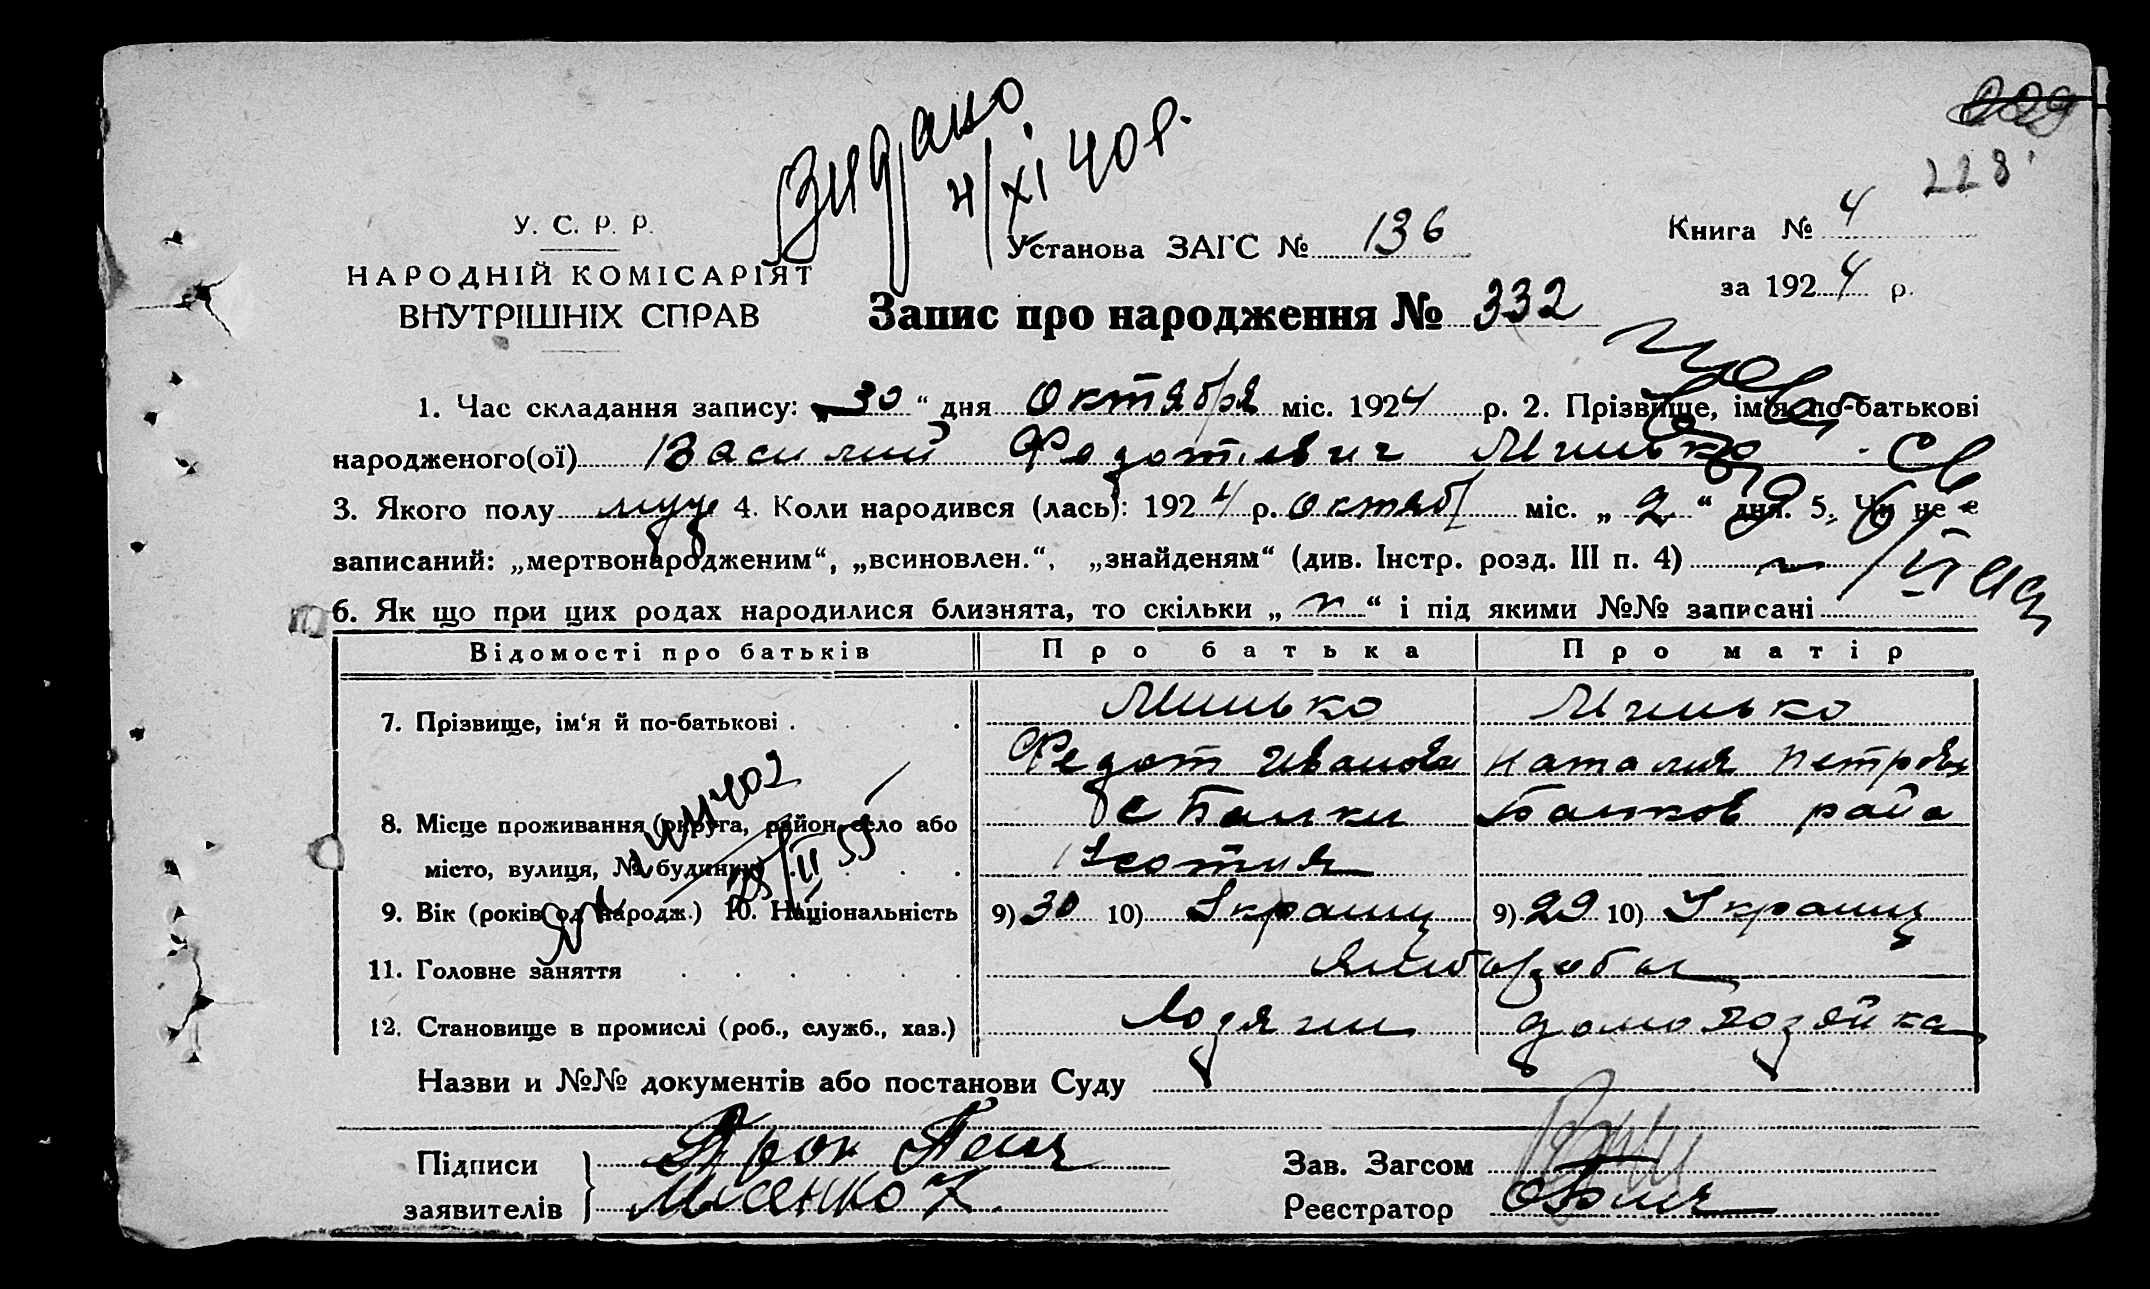 228
Видано
4/XI 40 р.
У. С. Р. Р.
НАРОДНІЙ КОМІСАРІЯТ
ВНУТРІШНІХ СПРАВ
Установа ЗАГС № 136
Книга № 4
за 1924 р.
Запис про народження № 332
1. Час складання запису: 30 “ дня Октября міс. 1924 р. 2. Прізвище, ім'я, по-батькові
народженого(ої) Василий Федотович Минько
3. Якого полу муж 4. Коли народився (лась): 1924 р. октяб міс. „ 2 “ дня. 5. Чи не є
записаний: „мертвонародженим“, „всиновлен.“, „знайденям“ (див. Інстр. розд. III п. 4)
6. Як що при цих родах народилися близнята, то скільки „ “ і під якими №№ записані
Відомості про батьків Про батька Про матір
7. Прізвище, ім'я й по-батькові . Минько Минько
Федот Иванов Наталия Петров
8. Місце проживання (округа, район, село або с Балки Балков райо
місто, вулиця, № будинку)
9. Вік (років од народж.) 10. Національність 9) 30 10) Украинц 9) 29 10) Украинц
11. Головне заняття хлебороб
12. Становище в промислі (роб., служб., хаз.) Хозяин домохозяйка
Назви и №№ документів або постанови Суду
Підписи
Зав. Загсом
заявителів
Реєстратор